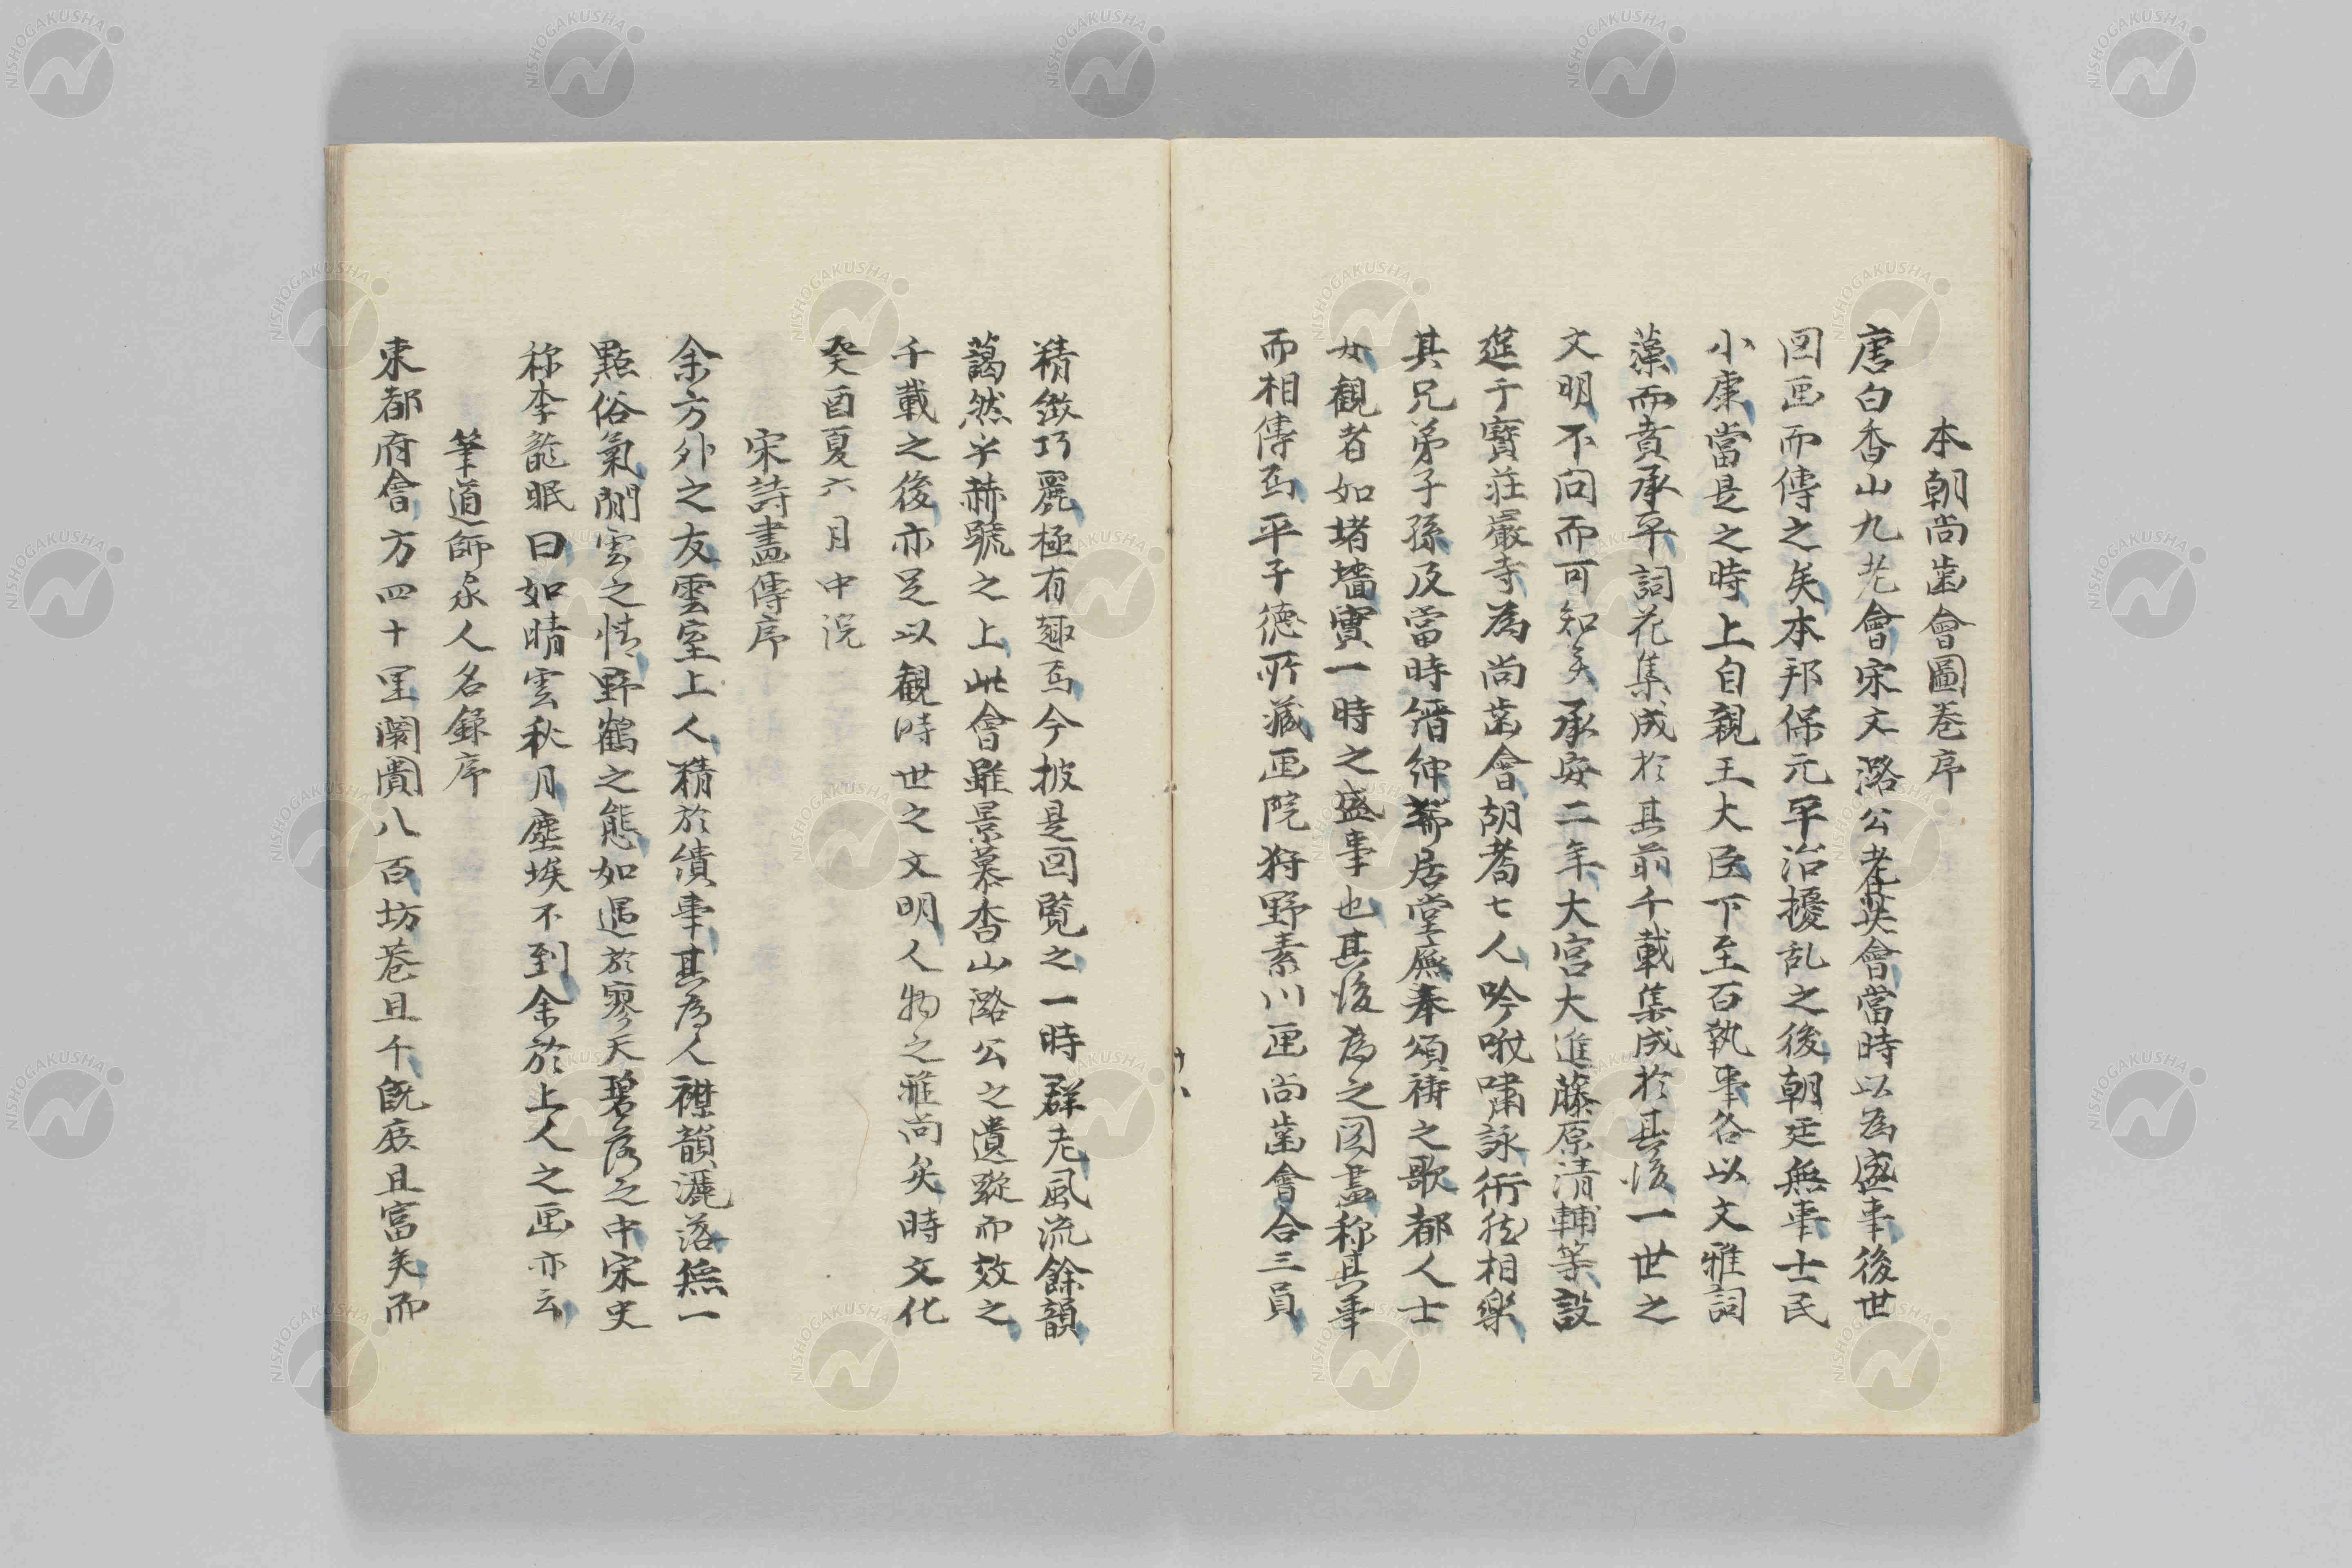 本朝尚歯會圖巻序
唐白香山九老會宋文潞公耆英會當時以為盛事後世
図画而傳之矣本邦保元平治擾乱之後朝廷無事士民
小康當是之時上自親王大臣下至百執事各以文雅詞
藻而賁承平詞花集成於其前千載集成於其後一世之
文明不問而可知矣承安二年大宮大進藤原清輔等設
筵于寳莊嚴寺為尚歯會胡耈七人吟哦嘯詠衎然相樂
其兄弟子孫及當時縉紳或居堂廡奉頌祷之歌都人士
女観者如堵墻實一時之盛事也其後為之図畫称其事
而相傳焉平子徳所藏画院狩野素川画尚歯會合三員
精緻巧麗極有趣焉今披是図覧之一時群老風流餘韻
藹然乎赫號之上此會雖景慕香山潞公之遺蹤而效之
千載之後亦足以観時世之文明人物之雅尚矣時文化
癸酉夏六月中浣
宋詩畫傳序
余方外之友雲室上人精於績事其為人襟韻灑落無一
點俗氣閒雲之情野鶴之態如遇於寥天碧落之中宋史
称李龍眠曰如晴雲秋月塵埃不到余於上人之画亦云
筆道師家人名録序
東都府會方四十里闤闠八百坊巷且千既庶且富矣而
NISHOGAKUSHA